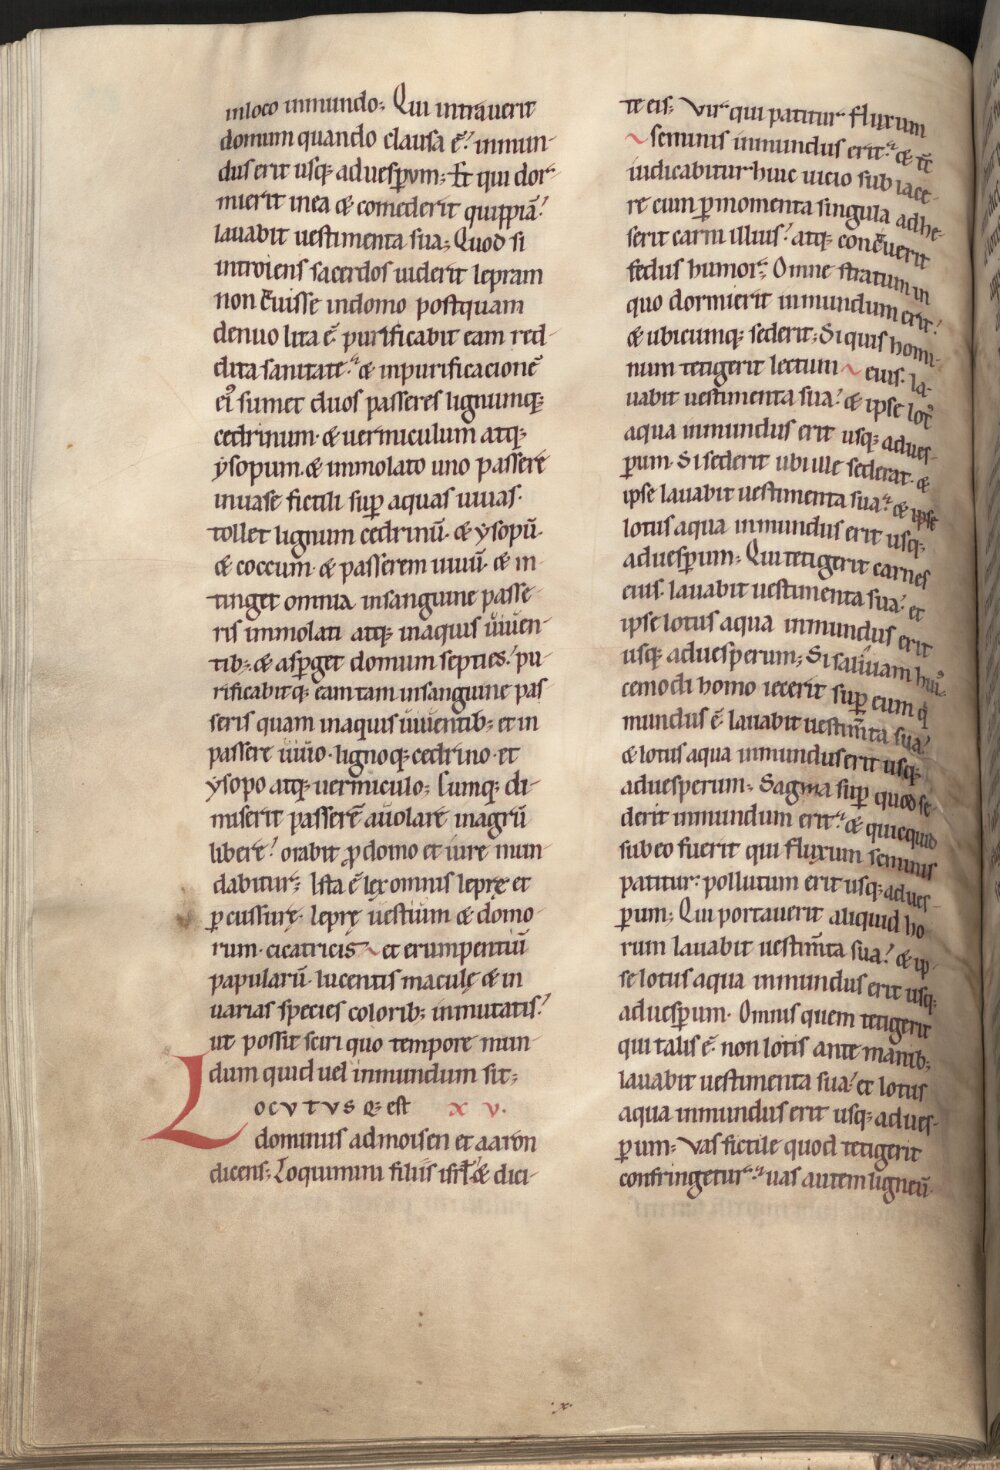 inloco inmundo; Qui intrauerit
domum quando clausa ē? inmun-
dus erit usq; aduesp̄vm; Et qui dor-
mierit inea & comederit quippiā?
lauabit uestimenta sua; Quod si
introiens sacerdos uiderit lepram
non c̄uisse indomo postquam
denuo lita ē. purificabit eam red-
dita sanitate. & inpurificacionē
ei᷒ sumet duos passeres lignumq;
cedrinum. & uermiculum atq;
ysopum. & immolato uno passere
inuase fictili sup̄ aquas uiuas.
tollet lignum cedrinū. & ysopū.
& coccum. & passerem uiuū. & in-
tinget omnia insanguine passe-
ris immolati atq; inaquis uiuen-
tib;. & asp̄get domum septies? pu-
rificabitq; eam tam insanguine pas-
seris quam inaquis uiuentib; et in
passere uiuo. lignoq; cedrino. et
ysopo atq; uermiculo; Cumq; di-
miserit passerē auolare inagrū
libere? orabit ꝓ domo et iure mun-
dabitur; Ista ē lex omnis leprę et
ꝑcussurę. leprę uestium & domo-
rum. cicatricis et erumpentiū
papularū. lucentis maculę & in
uarias species colorib; inmutatis?
ut possit sciri quo tempore mun-
dum quid uel inmundum sit;
LOCVTVS Q; est XV.
dominus admoisen et aaron
dicens; Loquimini filiis isrł & dici-
te eis; Vir qui patitur fluxum
seminis inmundus erit. & tc̄
iudicabitur huic uicio subiace-
re cum ꝑ momenta singula adhe-
serit carni illius? atq; conc̄uerit
fedus humor; Omne stratum in
quo dormierit inmundum erit?
& ubicumq; sederit; Si quis homi-
num tetigerit lectum eius. la-
uabit uestimenta sua? & ipse lot᷒
aqua inmundus erit usq; adues-
ꝑum. Si sederit ubi ille sederat. &
ipse lauabit uestimenta sua. & ipse
lotus aqua inmundus erit usq;
aduesꝑum; Qui tetigerit carnes
eius. lauabit uestimenta sua? et
ipse lotus aqua inmundus erit
usq; aduesperum; Si saliuam hui᷒-
cemodi homo iecerit sup̄ eum q̇
mundus ē. lauabit uestim̄ta sua?
& lotus aqua inmundus erit usq;
aduesperum. Sagma sup̄ quod se-
derit inmundum erit. & quicquid
sub eo fuerit qui fluxum seminis
patitur. pollutum erit usq; adues-
ꝑum; Qui portauerit aliquid ho-
rum lauabit uestim̄ta sua? & ip-
se lotus aqua inmundus erit usq;
aduesꝑum. Omnis quem tetigerit
qui talis ē. non lotis ante manib;
lauabit uestimenta sua? et lotus
aqua inmundus erit usq; adues-
ꝑum; Vas fictile quod tetigerit
confringetur. uas autem ligneū
.x.